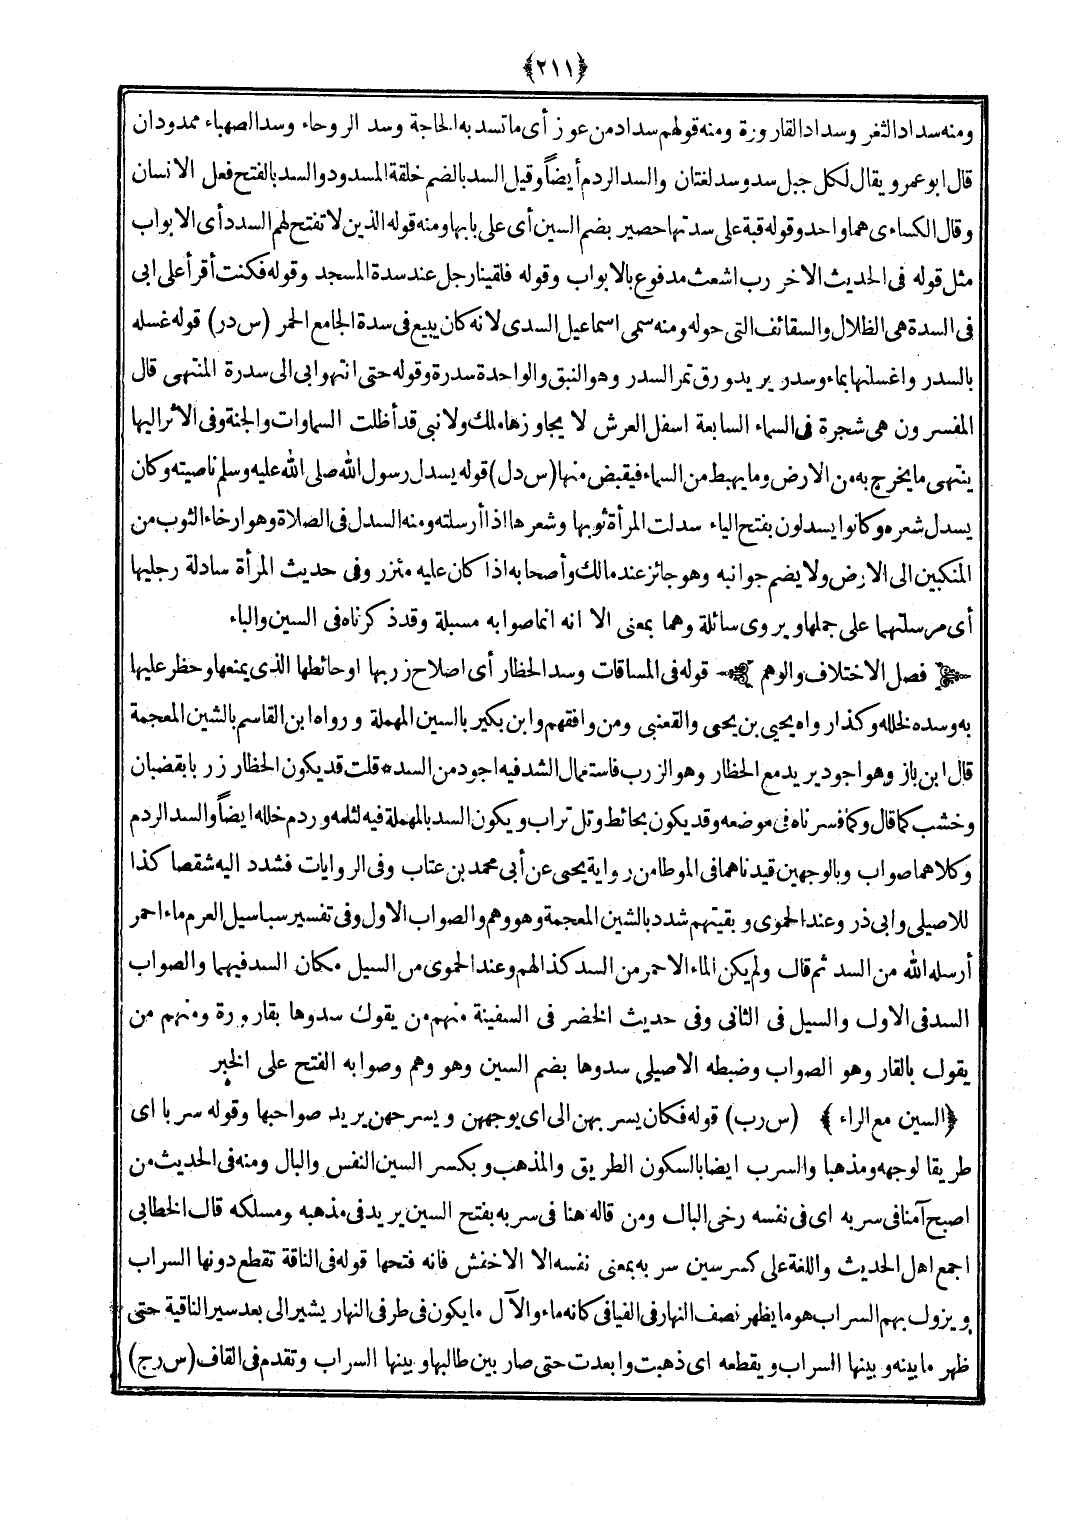 ﴿٢١١﴾
ومنه سداد الثغر وسداد القارورة ومنه قولهم سداد من عوز أى ما تسد به الحاجة وسد الروحاء وسد الصهباء ممدودان
قال ابو عمرو يقال لكل جبل سد وسد لغتان والسد الردم أيضاً وقيل السد بالضم خلقة المسدود والسد بالفتح فعل الانسان
وقال الكساءى هما واحد وقوله قبة على سدتها حصير بضم السين أى على بابها ومنه قوله الذين لا تفتح لهم السدد أى الابواب
مثل قوله فى الحديث الاخر رب اشعث مدفوع بالابواب وقوله فلقينا رجل عند سدة المسجد وقوله فكنت أقرأ على ابى
فى السدة هى الظلال والسقائف التى حوله ومنه سمى اسماعيل السدى لانه كان يبيع فى سدة الجامع الخمر (س در) قوله غسله
بالسدر واغسلنها بماء وسدر يريد ورق تمر السدر وهو النبق والواحدة سدرة وقوله حتى انتهوا بى الى سدرة المنتهى قال
المفسرون هى شجرة فى السماء السابعة اسفل العرش لا يجاوزها ملك ولا نبى قد أظلت السماوات والجنة وفى الأثر اليها
ينتهى ما يخرج به من الارض وما يهبط من السماء فيقبض منها (س دل) قوله يسدل رسول الله صلى الله عليه وسلم ناصيته وكان
يسدل شعره وكانوا يسدلون بفتح الياء سدلت المرأة ثوبها وشعرها اذا أرسلته ومنه السدل فى الصلاة وهو ارخاء الثوب من
المنكبين الى الارض ولا يضم جوانبه وهو جائز عند مالك وأصحابه اذا كان عليه مئزر وفى حديث المرأة سادلة رجليها
أى مرسلتهما على جملها ويروى سائلة وهما بمعنى الا انه انما صوابه مسبلة وقد ذكرناه فى السين والباء
﴿ فصل الاختلاف والوهم ﴾ قوله فى المساقات وسد الحظار أى اصلاح زربها او حائطها الذى يمنعها وحظر عليها
به وسده لخلله وكذا رواه يحيى بن يحيى والقعنبى ومن وافقهم وابن بكير بالسين المهملة ورواه ابن القاسم بالشين المعجمة
قال ابن باز وهو اجود يريد مع الحظار وهو الزرب فاستعمال الشد فيه اجود من السد * قلت قد يكون الحظار زربا بقضبان
وخشب كما قال وكما فسرناه فى موضعه وقد يكون بحائط وتل تراب ويكون السد بالمهملة فيه لثلمه وردم خلله ايضاً والسد الردم
وكلاهما صواب وبالوجهين قيدناهما فى الموطا من رواية يحيى عن أبى محمد بن عتاب وفى الروايات فشدد اليه شقصا كذا
للاصيلى وابى ذر وعند الحموى وبقيتهم شدد بالشين المعجمة وهو وهم والصواب الاول وفى تفسير سبا سيل العرم ماء احمر
أرسله الله من السد ثم قال ولم يكن الماء الاحمر من السد كذا لهم وعند الحموى من السيل مكان السد فيهما والصواب
السد فى الاول والسيل فى الثانى وفى حديث الخضر فى السفينة منهم من يقول سدوها بقارورة ومنهم من
يقول بالقار وهو الصواب وضبطه الاصيلى سدوها بضم السين وهو وهم وصوابه الفتح على الخبر
﴿السين مع الراء﴾ (س رب) قوله فكان يسر بهن الى اى يوجههن ويسرحهن يريد صواحبها وقوله سربا اى
طريقا لوجهه ومذهبا والسرب ايضا بالسكون الطريق والمذهب وبكسر السين النفس والبال ومنه فى الحديث من
اصبح آمنا فى سربه اى فى نفسه رخى البال ومن قاله هنا فى سربه بفتح السين يريد فى مذهبه ومسلكه قال الخطابى
اجمع اهل الحديث واللغة على كسر سين سربه بمعنى نفسه الا الاخفش فانه فتحها قوله فى الناقة تقطع دونها السراب
ويزول بهم السراب هو ما يظهر نصف النهار فى الفيافى كانه ماء والآل ما يكون فى طرفى النهار يشير الى بعد سير الناقية حتى
ظهر ما بينه وبينها السراب ويقطعه اى ذهبت وابعدت حتى صار بين طالبها وبينها السراب وتقدم فى القاف (س رج)